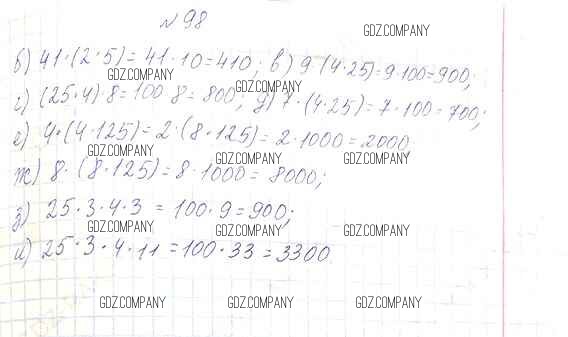 №98
GDZ.COMPANY
б) 41·(2·5)=41·10=410; в) 9·(4·25)=9·100=900;
GDZ.COMPANY
GDZ.COMPANY
г) (25·4)·8=100·8=800; д) 7·(4·25)=7·100=700;
е) 4·(4·125)=2·(8·125)=2·1000=2000
GDZ.COMPANY GDZ.COMPANY GDZ.COMPANY
ж) 8·(8·125)=8·1000=8000;
з) 25·3·4·3=100·9=900;
GDZ.COMPANY GDZ.COMPANY GDZ.COMPANY
и) 25·3·4·11=100·33=3300
GDZ.COMPANY GDZ.COMPANY GDZ.COMPANY